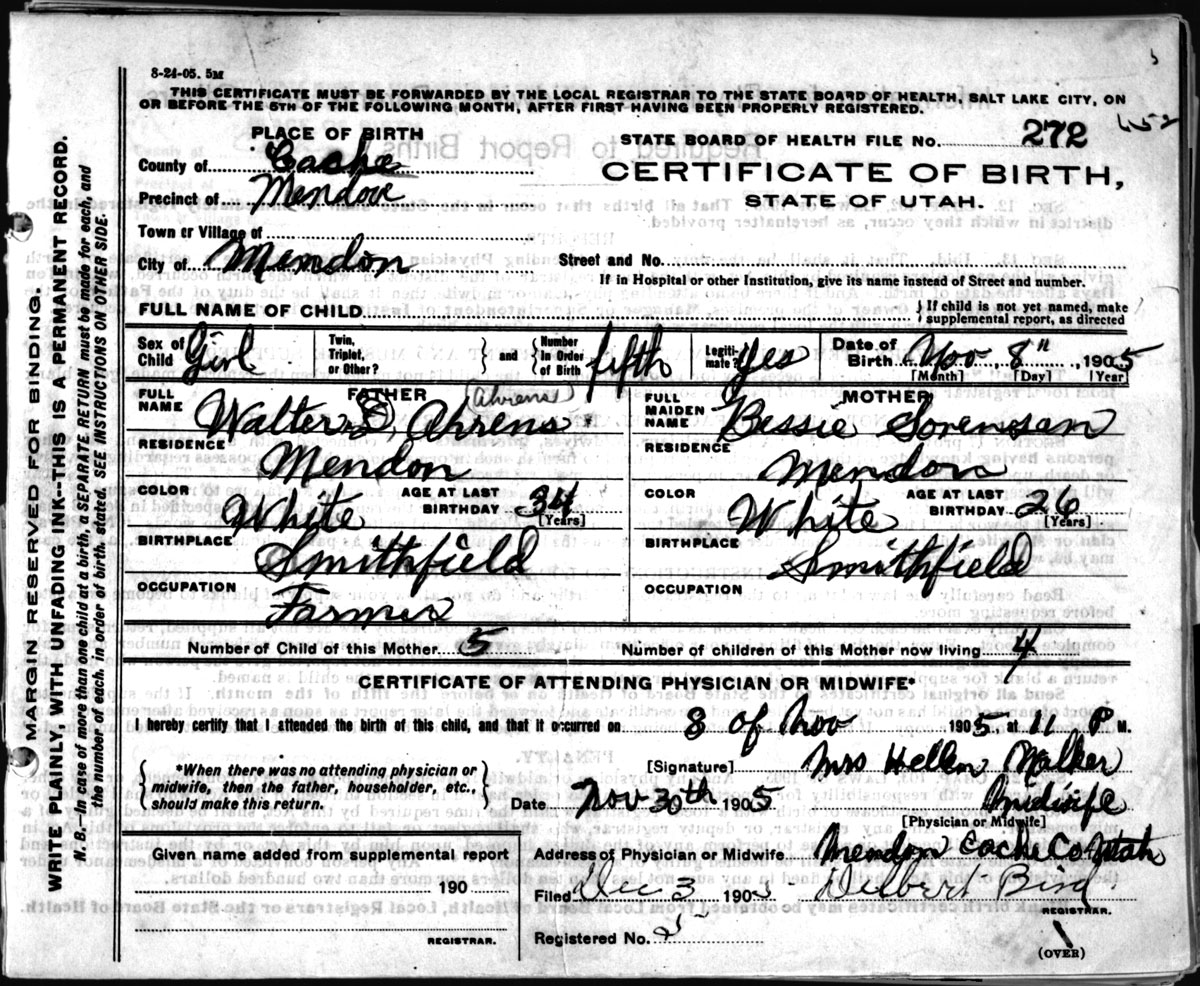 8-24-05. 5M
THIS CERTIFICATE MUST BE FORWARDED BY THE LOCAL REGISTRAR TO THE STATE BOARD OF HEALTH, SALT LAKE CITY, ON
OR BEFORE THE 5TH OF THE FOLLOWING MONTH, AFTER FIRST HAVING BEEN PROPERLY REGISTERED.
PLACE OF BIRTH
County of Cache
Precinct of Mendon
Town or Village of
City of Mendon
STATE BOARD OF HEALTH FILE No. 272
CERTIFICATE OF BIRTH,
STATE OF UTAH.
Street and No.
If in Hospital or other Institution, give its name instead of Street and number.
FULL NAME OF CHILD
} If child is not yet named, make supplemental report, as directed
Sex of Child Girl
Twin, Triplet, or Other? } and { Number In Order of Birth fifth
Legitimate? Yes
Date of Birth Nov 8", 1905
[Month] [Day] [Year]
FATHER
(Ahrens)
FULL NAME Walter S, Ahrens
RESIDENCE Mendon
COLOR White AGE AT LAST BIRTHDAY 34
[Years]
BIRTHPLACE Smithfield
OCCUPATION Farmer
MOTHER
FULL MAIDEN NAME Bessie Sorensen
RESIDENCE Mendon
COLOR White AGE AT LAST BIRTHDAY 26
[Years]
BIRTHPLACE Smithfield
OCCUPATION
Number of Child of this Mother 5 Number of children of this Mother now living 4
CERTIFICATE OF ATTENDING PHYSICIAN OR MIDWIFE*
I hereby certify that I attended the birth of this child, and that it occurred on 8 of Nov 1905 at 11 P M.
{ *When there was no attending physician or
midwife, then the father, householder, etc.,
should make this return. }
[Signature] Mrs Hellen Walker
Date Nov 30th 1905 Midwife
[Physician or Midwife]
Given name added from supplemental report
190
REGISTRAR.
Address of Physician or Midwife Mendon Cache Co Utah
Filed Dec 3 1905 Delbert Bird
REGISTRAR.
Registered No. 5
(OVER)
MARGIN RESERVED FOR BINDING.
WRITE PLAINLY, WITH UNFADING INK--THIS IS A PERMANENT RECORD.
N. B.--In case of more than one child at a birth, a SEPARATE RETURN must be made for each, and
the number of each, in order of birth, stated. SEE INSTRUCTIONS ON OTHER SIDE.